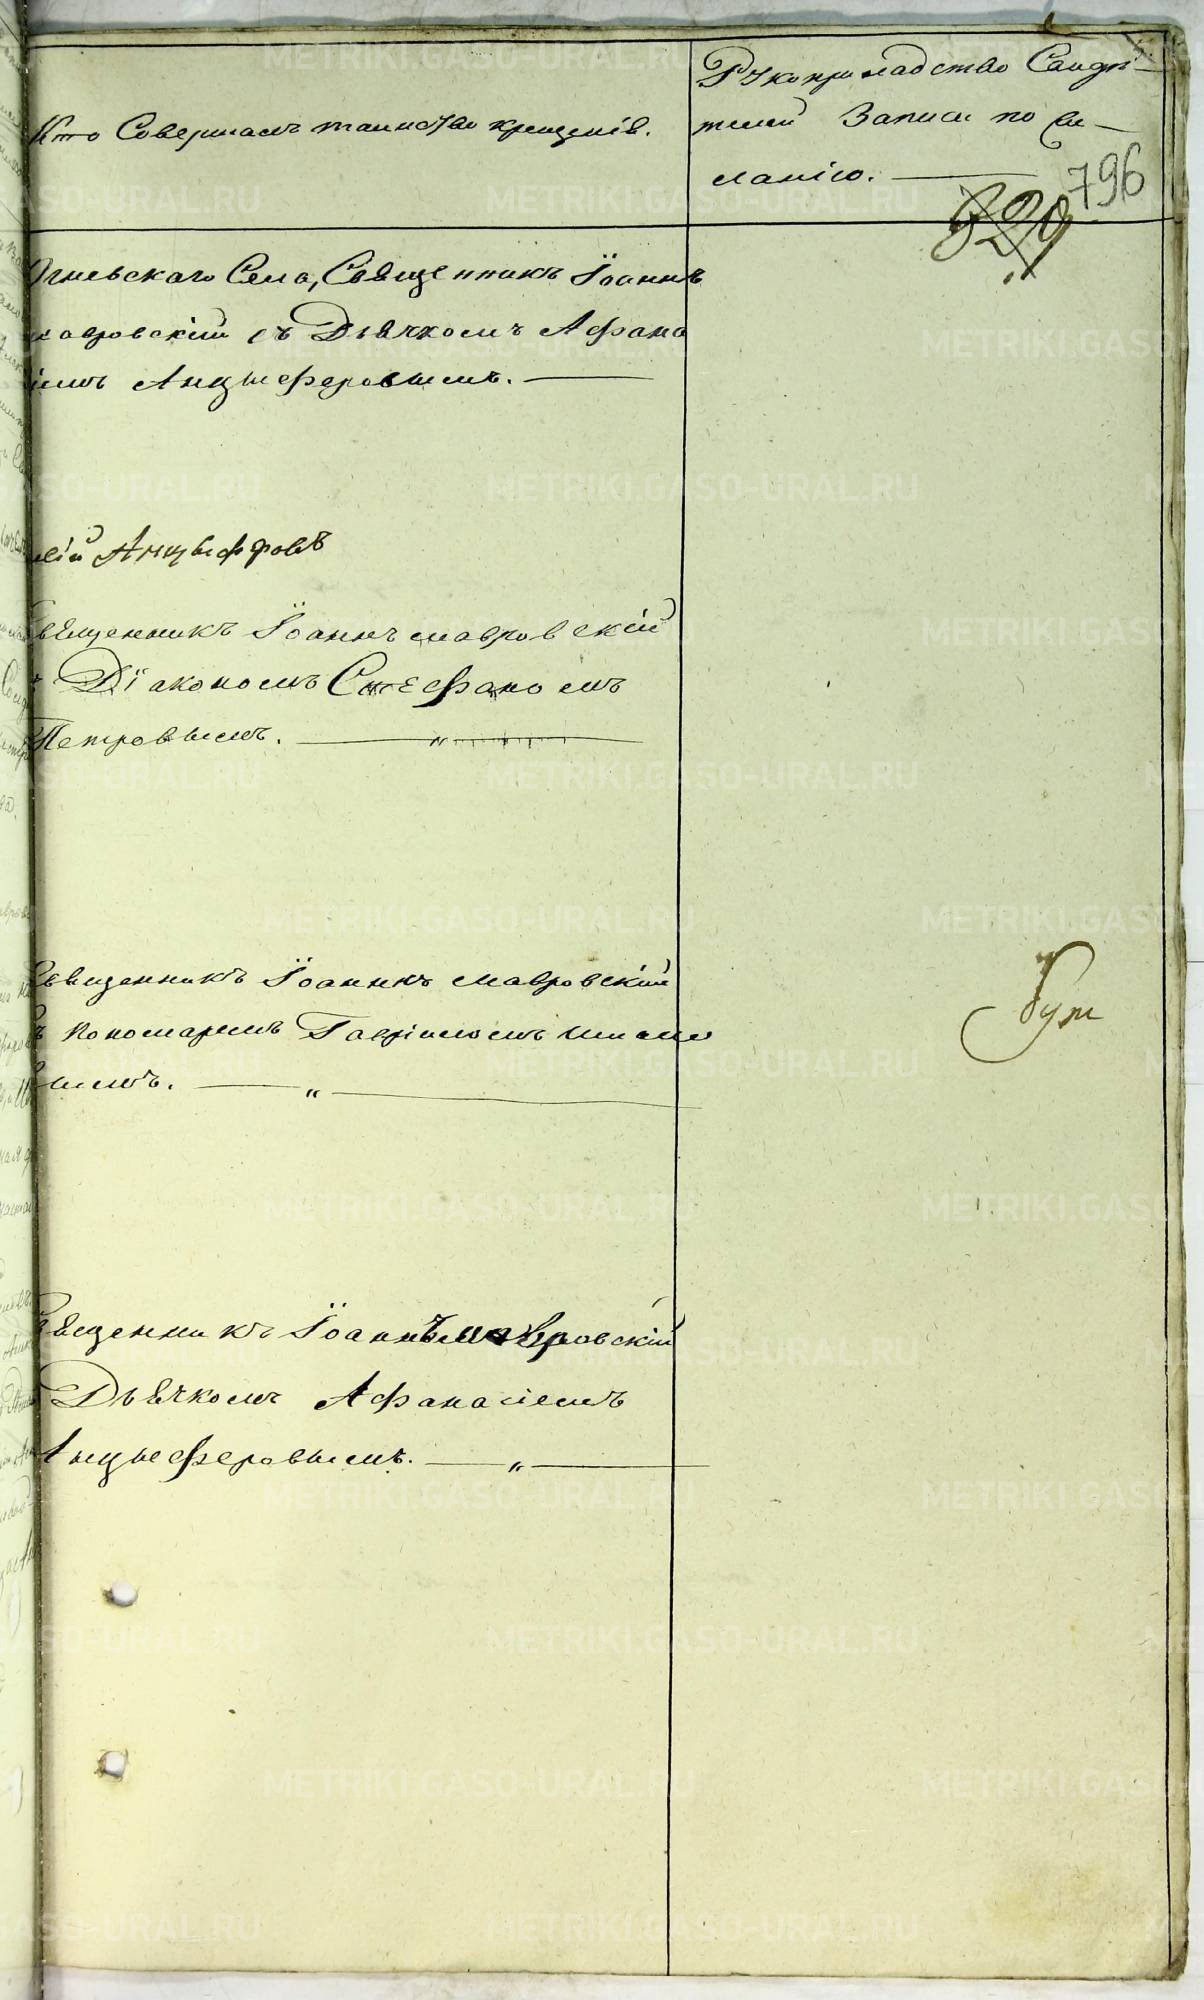 Кто Совершалъ таинство крещенія.
Рукоприкладство Свидѣ-
телей Записи по же-
ланію.
796
329
Огневскаго Села, Священникъ Іоаннъ
Мавровскій съ Дьячкомъ Афана
іемъ Анцыферовымъ.
лій Анцыферовъ
Священникъ Іоаннъ Мавровскій
Діакономъ Стефаномъ
Петровымъ.
Священникъ Іоаннъ Мавровскій
ъ Пономаремъ Гавріиломъ
Священникъ Іоаннъ Мавровскій
Дьячкомъ Афанасіемъ
Анцыферовымъ.
METRIKI.GASO-URAL.RU